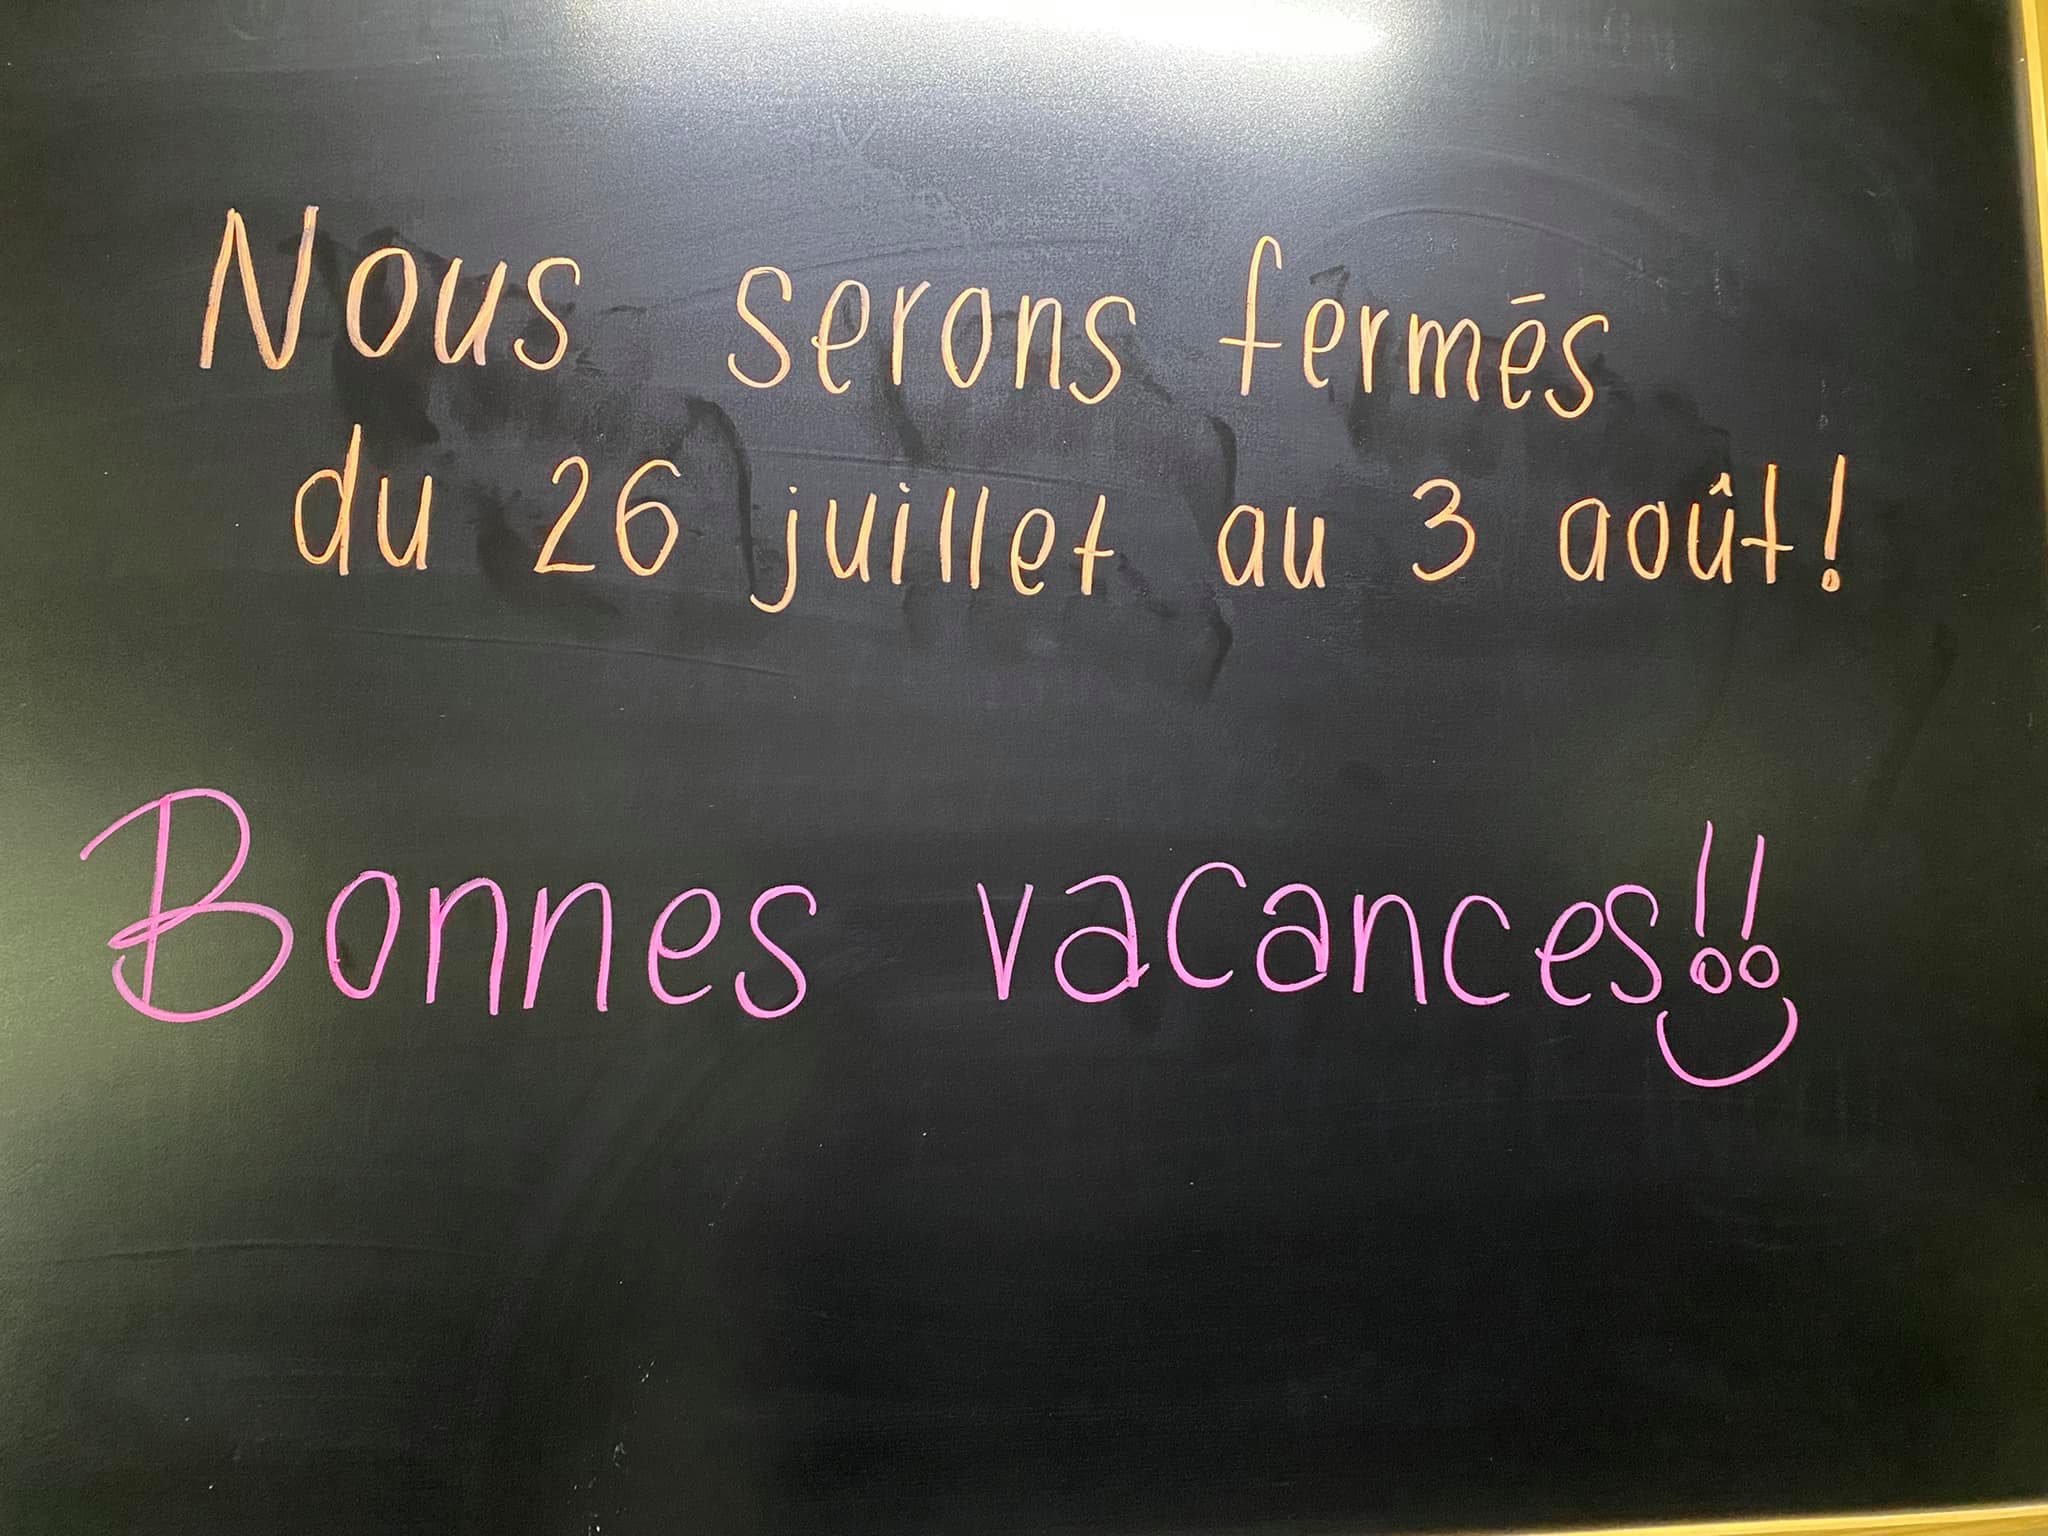 Nous serons fermés
du 26 juillet au 3 août!
Bonnes vacances!!